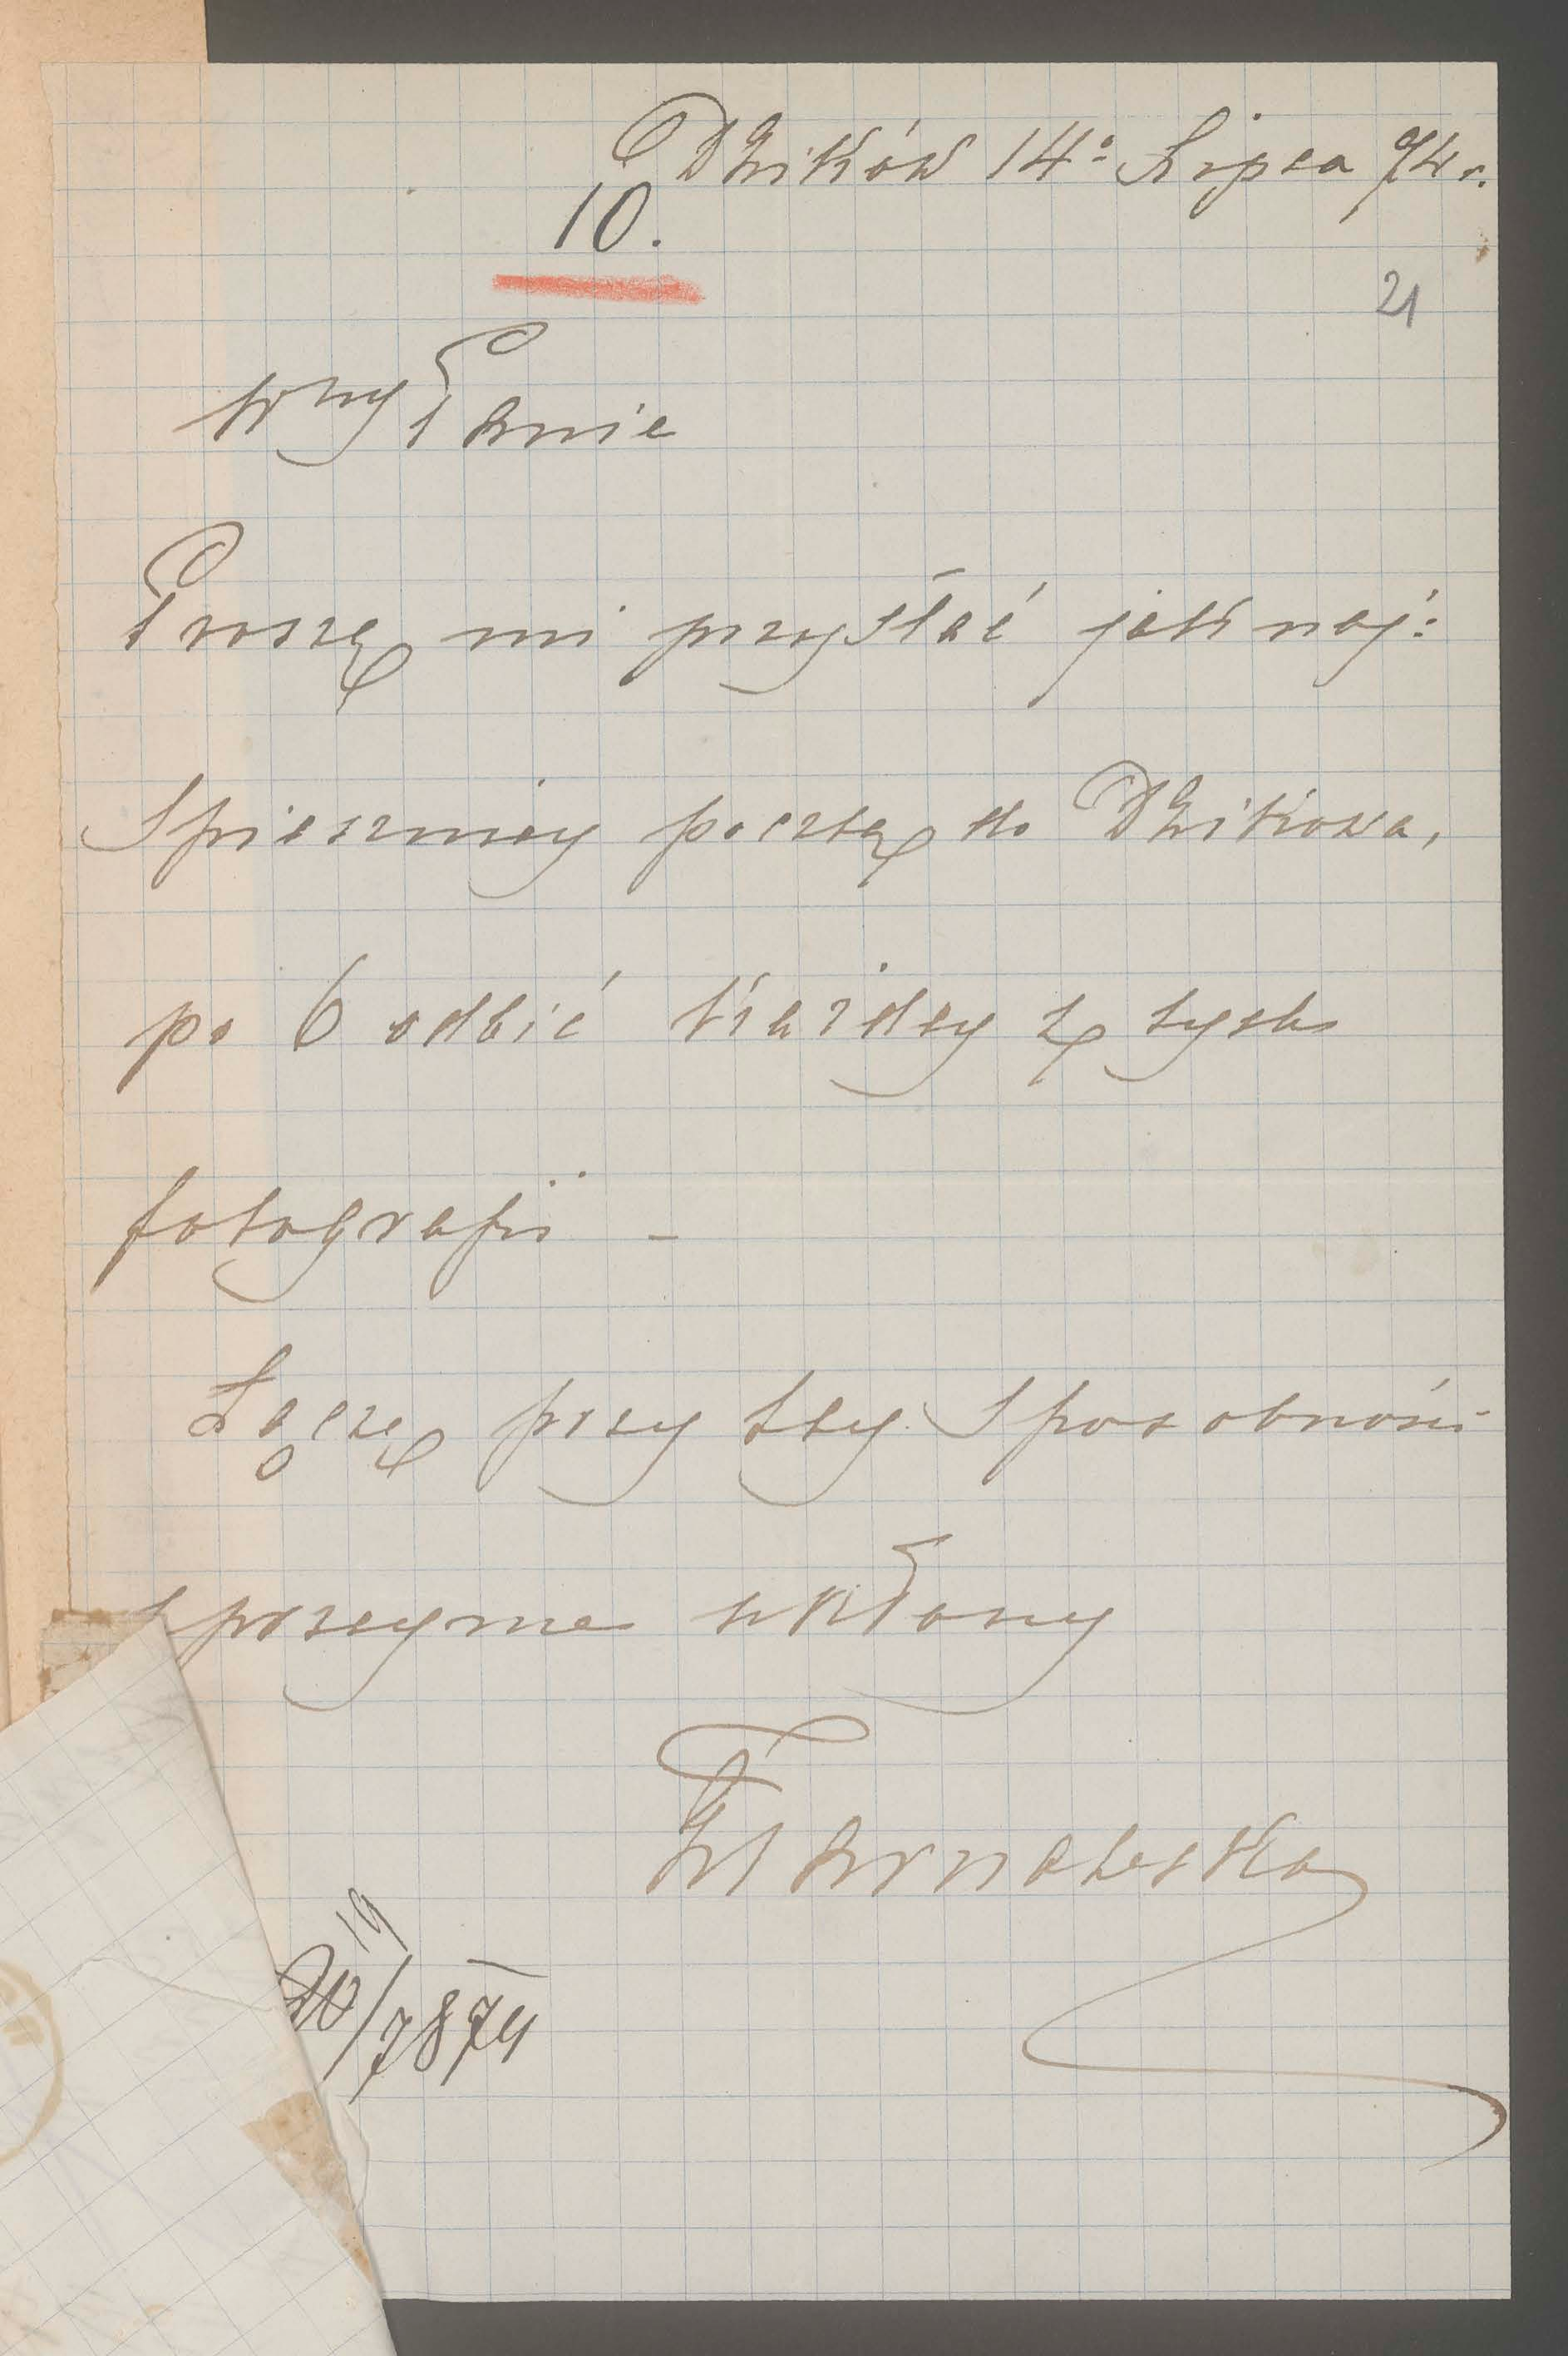 Dzików 14º Lipca 74 r.
10.
21
Wny Panie
Proszę mi przysłać jak naj:
Spieszniey pocztą do Dzikowa,
po 6 odbić każdey z tych
fotografii –
Łączę przy tey Sposobności
uprzeyme ukłony
Tarnowska
19
20/7 874